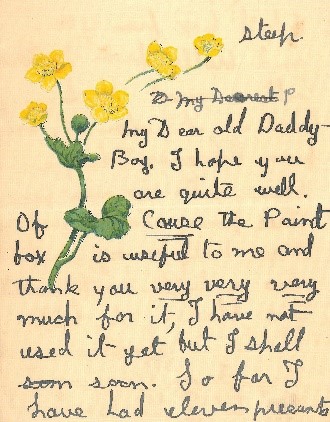 steep.
My Dearest P
My Dear old Daddy-
Boy. I hope you
are quite well.
Of Couse the Paint
box is useful to me and
thank you very very very
much for it, I have not
used it yet but I shall
som soon. So far I
have had eleven presents